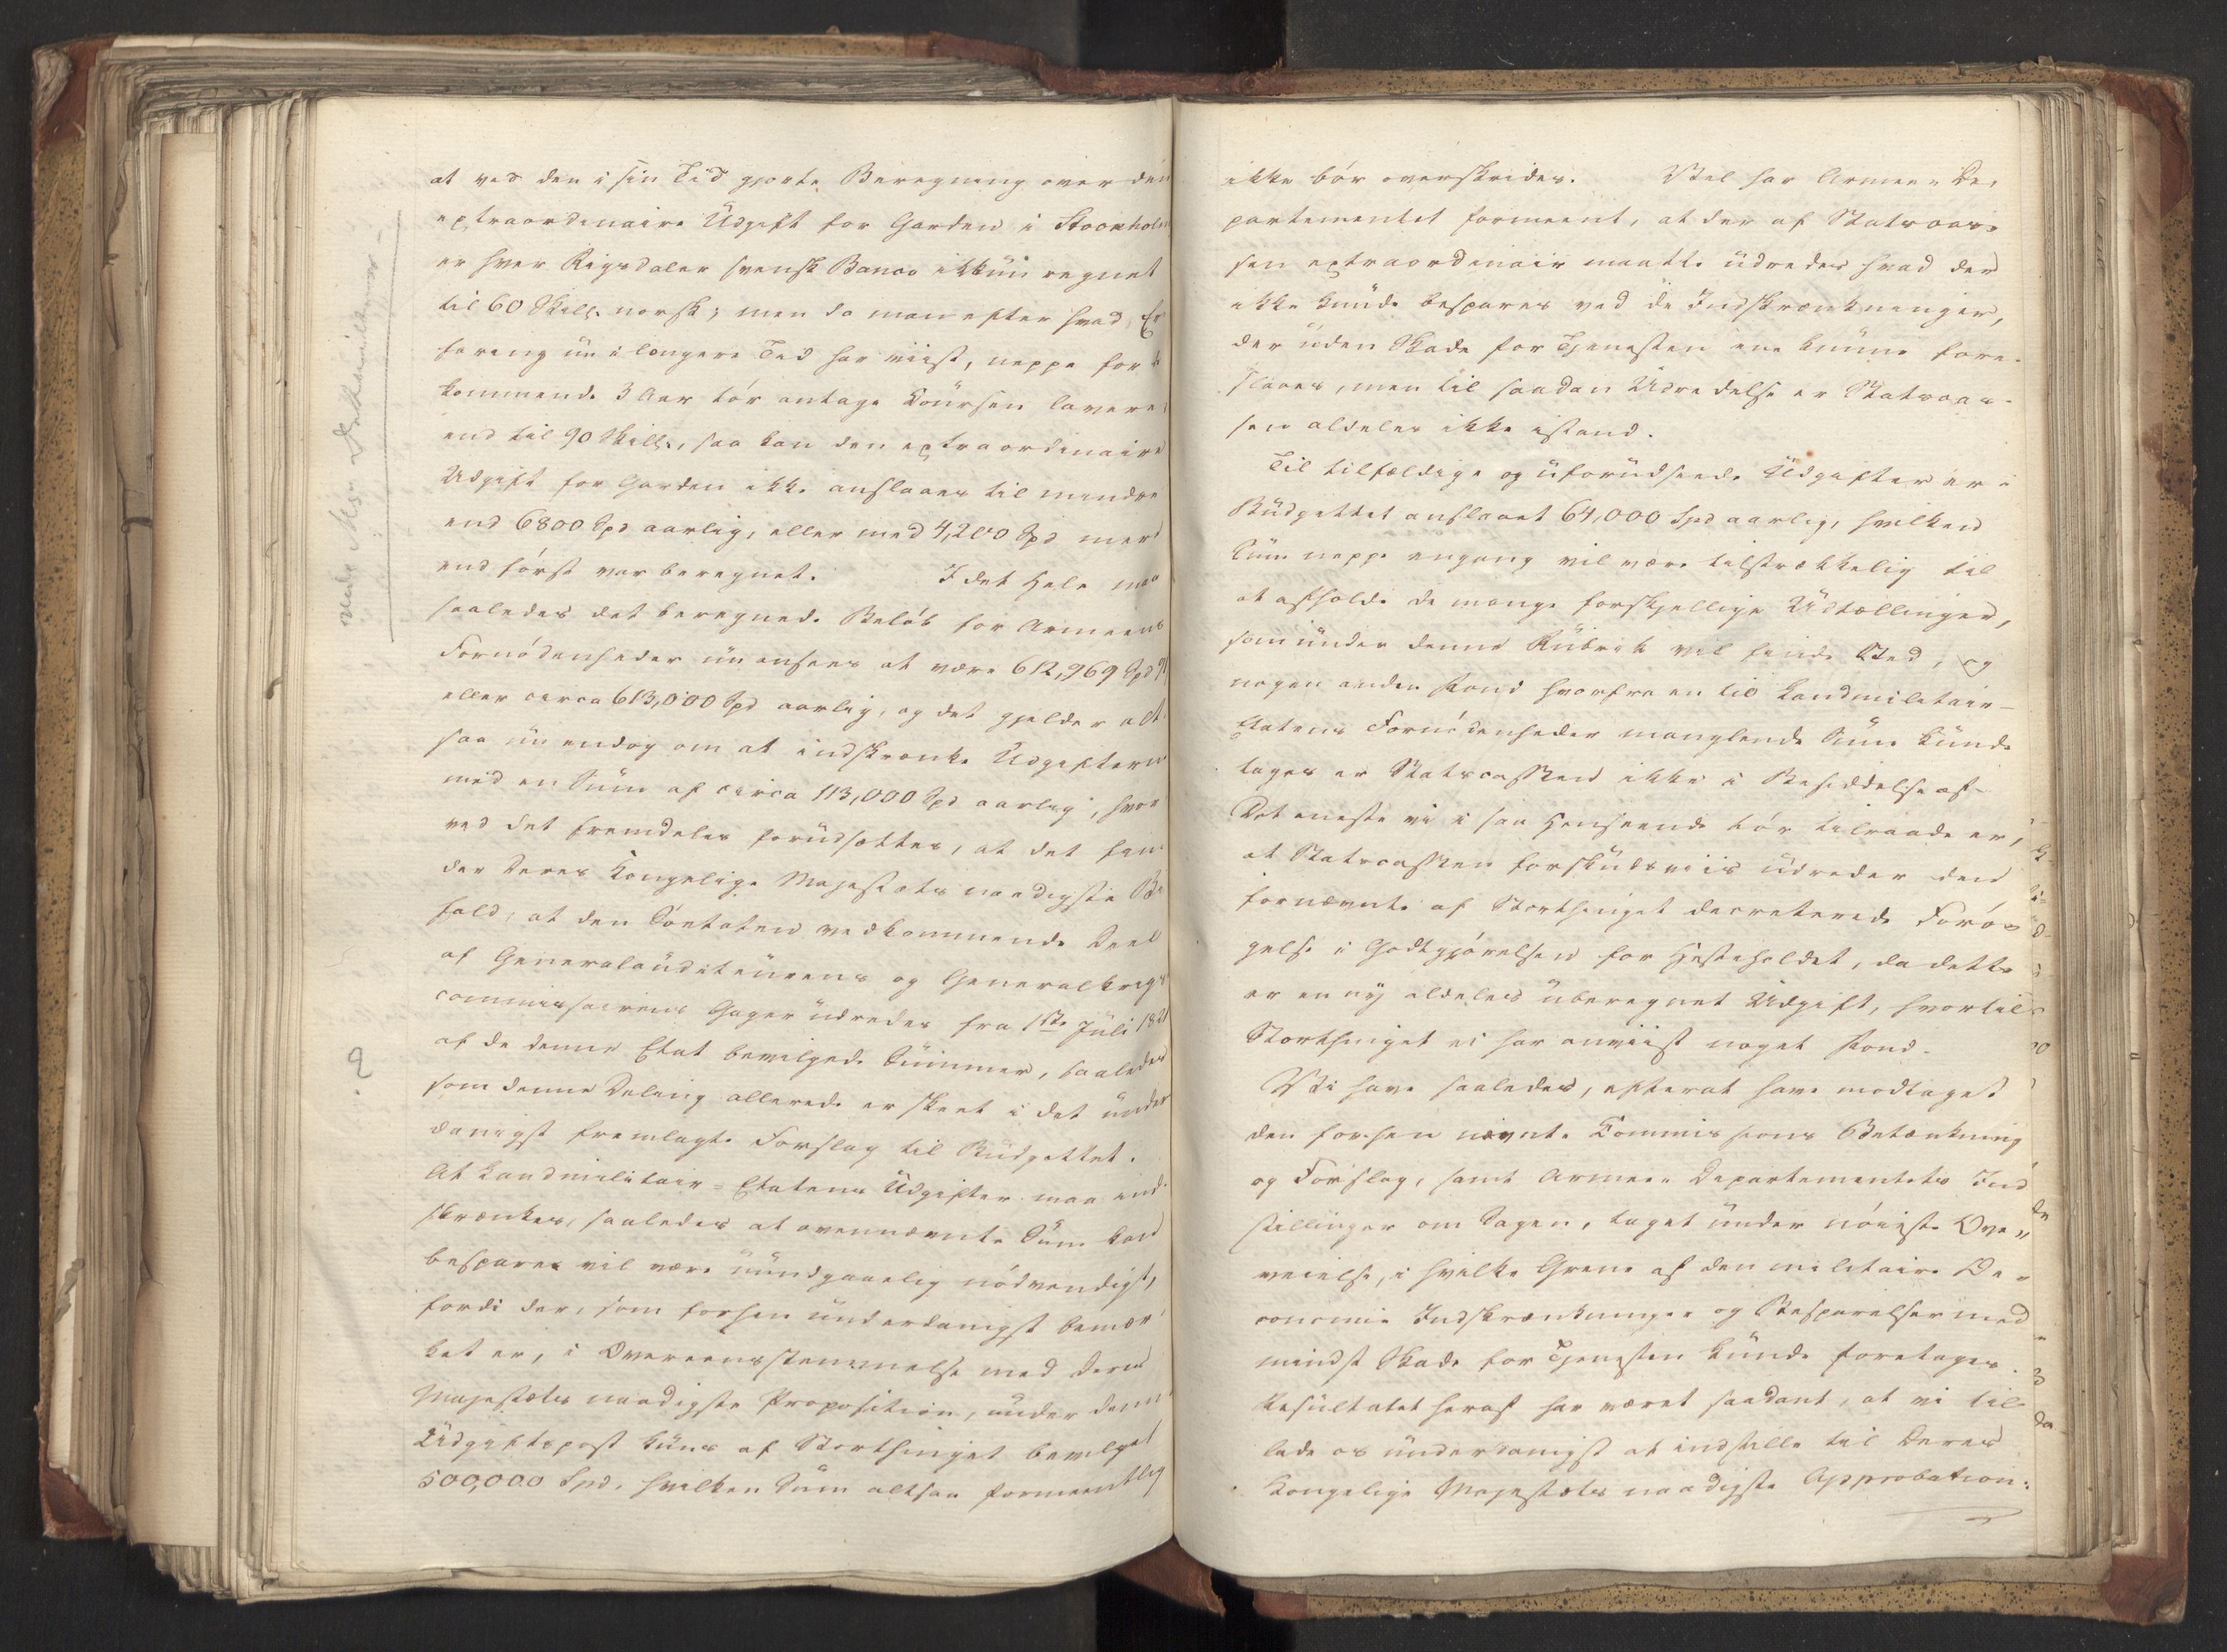 at ved den i sin Tid gjorte Beregning over den
extraordinaire Udgift for Garden i Stockholm
er hver Rigsdaler svensk Banco ikkun regnet
til 60 Skill. norsk; men da man efter hvad Er
faring nu i længere Tid har viist, neppe for
kommende 3 Aar tør antage Coursen lavere
end til 90 Skill., saa kan den extraordinaire
Udgift for Garden ikke anslaaes til mindre
end 6800 Spd aarlig, eller med 4,200 Spd mere
end først var beregnet. I det Hele maa
saaledes det beregnede Beløb for Armeens
Fornødenheder nu ansees at være 612,969 Spd
eller circa 613,000 Spd aarlig, og det gjelder alt
saa nu endog om at indskrænke Udgifterne
med en Sum af circa 113,000 Spd aarlig, hvor
ved det fremdeles forudsættes, at det fin
der Deres Kongelige Majestæts naadigste Bi
fald, at den Søetaten vedkommende Deel
af Generalauditeurens og Generalkrigs
commissairens Gager udredes fra 1ste Juli 1821
af de denne Etat bevilgede Summer, saaledes
som denne Deling allerede er skeet i det under
danigst fremlagte Forslag til Budgettet.
At Landmilitair-Etatens Udgifter maa ind
skrænkes, saaledes at ovennævnte Sum kan
bespares vil være uundgaaelig nødvendigt,
fordi der, som forhen underdanigst bemær
ket er, i Overeensstemmelse med Deres
Majestæts naadigste Proposition, under denne
Udgiftspost kuns af Storthinget bevilget
500,000 Spd, hvilken Sum altsaa formeentlig
ikke bør overskrides. Vel har Armee-De-
partementet formeent, at der af Statscas-
sen extraordinair maatte udredes hvad der
ikke kunde bespares ved de Indskrænkninger,
der uden Skade for Tjenesten ene kunne fore-
slaaes, men til saadan Udredelse er Statscas-
sen aldeles ikke istand.
Til tilfældige og uforudseede Udgifter er i
Budgettet anslaaet 64,000 Spd aarlig, hvilken
Sum neppe engang vil være tilstrækkelig til
at afholde de mange forskjellige Udtællinger,
som under denne Rubrik vil finde Sted, og
nogen anden Fond hvorfra en til Landmilitair-
Etatens Fornødenheder manglende Sum kunde
tages er Statscassen ikke i Besiddelse af.
Det eneste vi i saa Henseende tør tilraade er,
at Statscassen forskudsviis udreder den
fornævnte af Storthinget decreterede Forø-
gelse i Godtgjørelsen for Hesteholdet, da dette
er en ny aldeles uberegnet Udgift, hvortil
Storthinget ei har anviist noget Fond.
Vi have saaledes, efterat have modtaget
den forhen nævnte Commissions Betænkning
og Forslag, samt Armee-Departementets Ind
stillinger om Sagen, taget under nøieste Over-
veielse, i hvilke Grene af den militaire Oe-
conomie Indskrænkninger og Besparelser med
mindst Skade for Tjenesten kunde foretages.
Resultatet heraf har været saadant, at vi til
lade os underdanigst at indstille til Deres
Kongelige Majestæts naadigste Approbation: